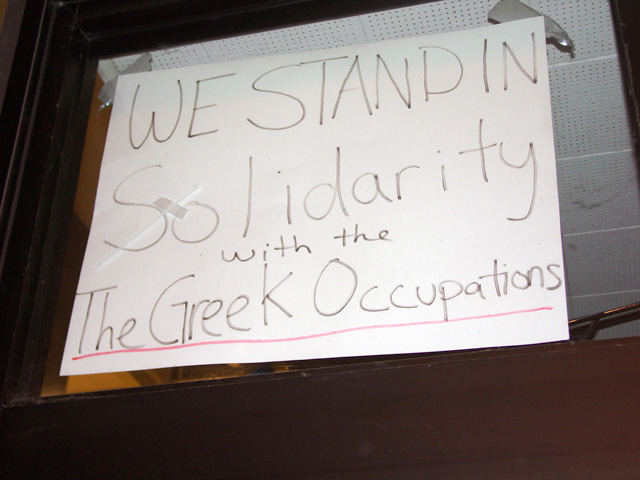 WE STAND IN
Solidarity
with the
The Greek Occupations